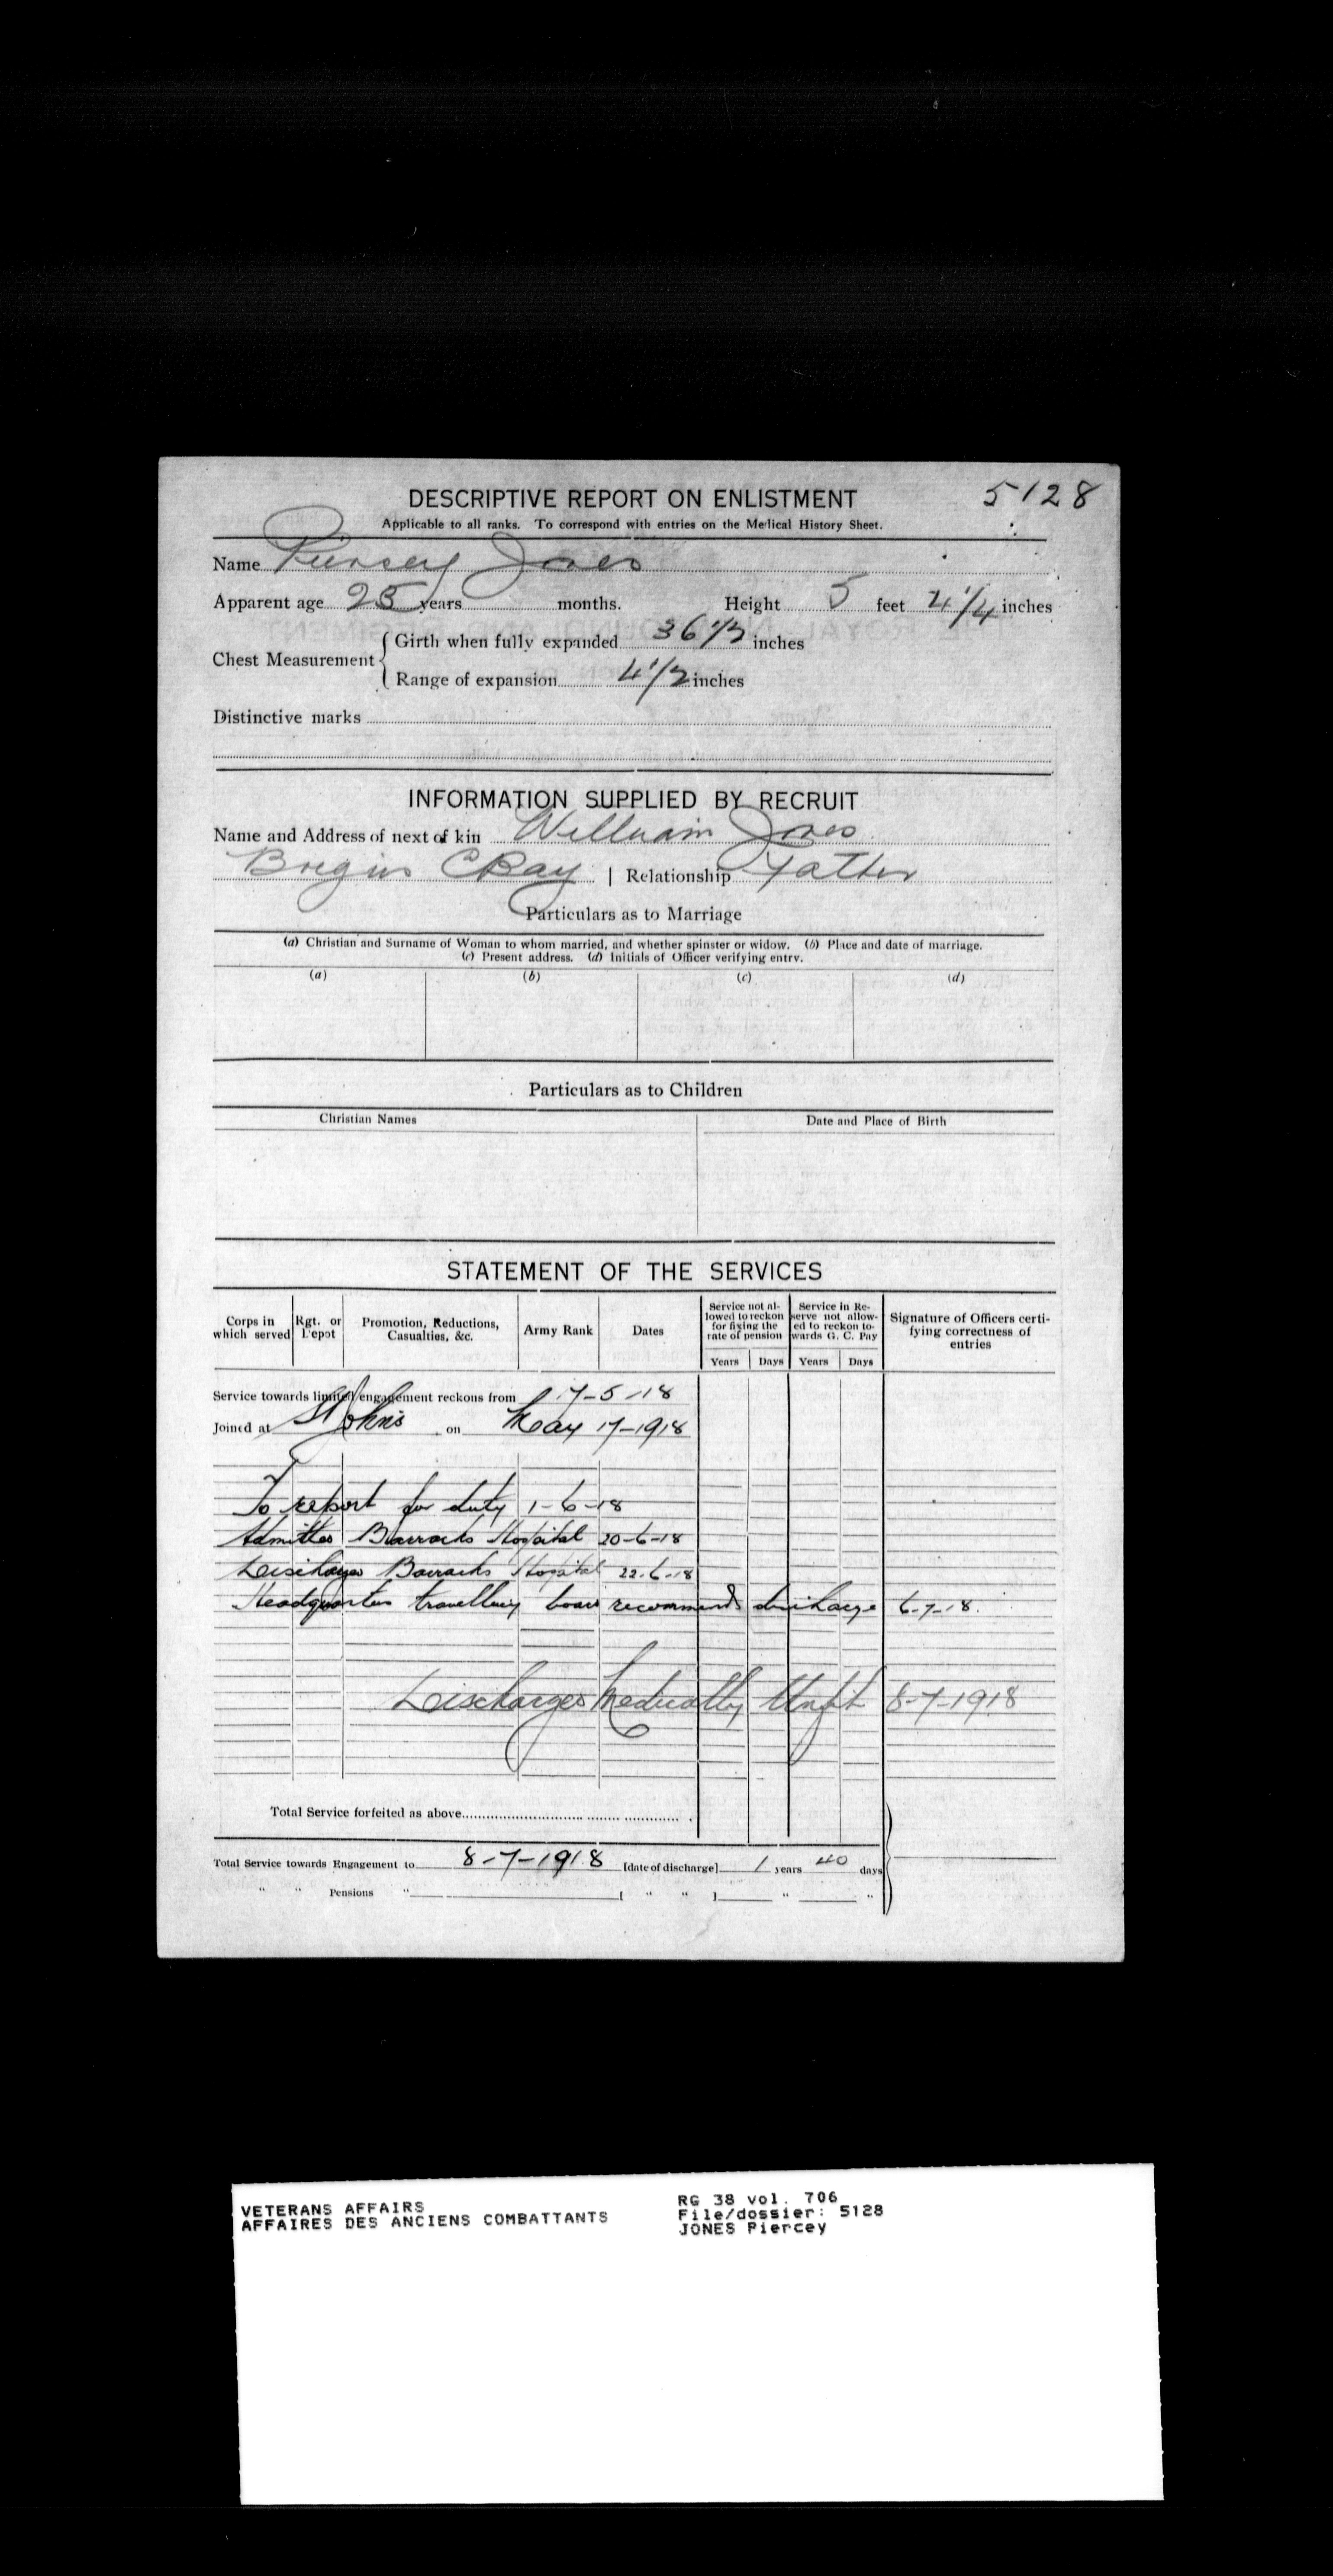 5128
DESCRIPTIVE REPORT ON ENLISTMENT
Applicable to all ranks. To correspond with entries on the Medical History Sheet.
Name Piercey Jones
Apparent age 25 years months. Height 5 feet 4 1/4 inches
Chest Measurement { Girth when fully expanded 36 1/2 inches
Range of expansion 4 1/2 inches
Distinctive marks
INFORMATION SUPPLIED BY RECRUIT
Name and Address of next of kin William Jones
Brigus CBay | Relationship Father
Particulars as to Marriage
(a) Christian and Surname of Woman to whom married, and whether spinster or widow. (b) Place and date of marriage.
(c) Present address. (d) Initials of Officer verifying entry.
(a) (b) (c) (d)
Particulars as to Children
Christian Names Date and Place of Birth
STATEMENT OF THE SERVICES
Corps in which served Rgt. or Depot Promotion, Reductions, Casualties, &c. Army Rank Dates Service not allowed to reckon for fixing the rate of pension Service in Reserve not allowed to reckon towards G. C. Pay Signature of Officers certifying correctness of entries
Years Days Years Days
Service towards limited engagement reckons from 17-5-18
Joined at St Johns on May 17-1918
To report for duty 1-6-18
Admitted Barracks Hospital 20-6-18
Discharged Barracks Hospital 22-6-18
Headquarters travelling board recommends discharge 6-7-18.
Discharged Medically Unfit 8-7-1918
Total Service forfeited as above
Total Service towards Engagement to 8-7-1918 [date of discharge] 1 years 40 days
" " Pensions " [ " " ] " "
VETERANS AFFAIRS
AFFAIRES DES ANCIENS COMBATTANTS
RG 38 vol. 706
File/dossier: 5128
JONES Piercey